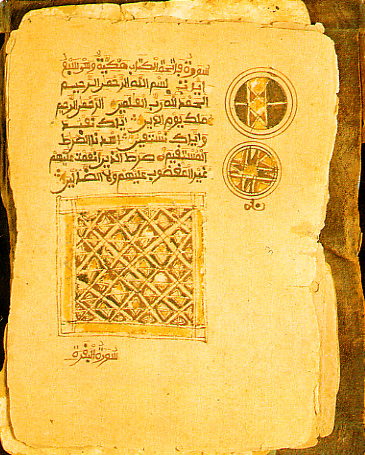 سورة فاتحة الكتاب مكية وهي سبع
ايت بسم الله الرحمن الرحيم
الحمد لله رب العلمين الرحمن الرحيم
ملك يوم الدين اياك نعبد
واياك نستعين اهدنا الصرط
المستقيم صرط الذين انعمت عليهم
غير المغضوب عليهم ولا الضالين
سورة البقرة